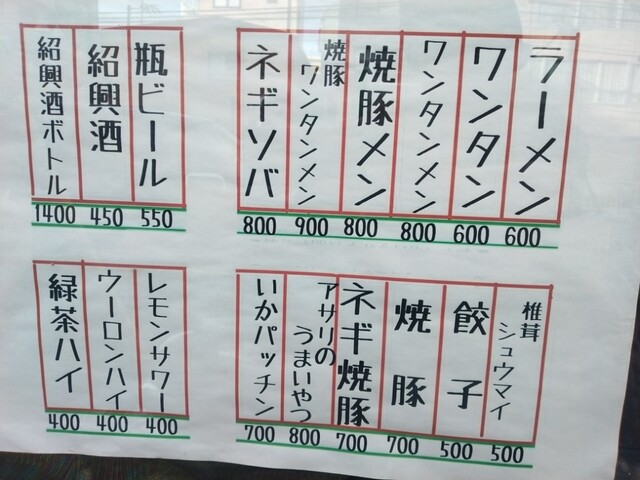 ラーメン
600
ワンタン
600
ワンタンメン
800
焼豚メン
800
焼豚
ワンタンメン
900
ネギソバ
800
瓶ビール
550
紹興酒
450
紹興酒ボトル
1400
椎茸
シュウマイ
500
餃子
500
焼豚
700
ネギ焼豚
700
アサリの
うまいやつ
800
いかパッチン
700
レモンサワー
400
ウーロンハイ
400
緑茶ハイ
400